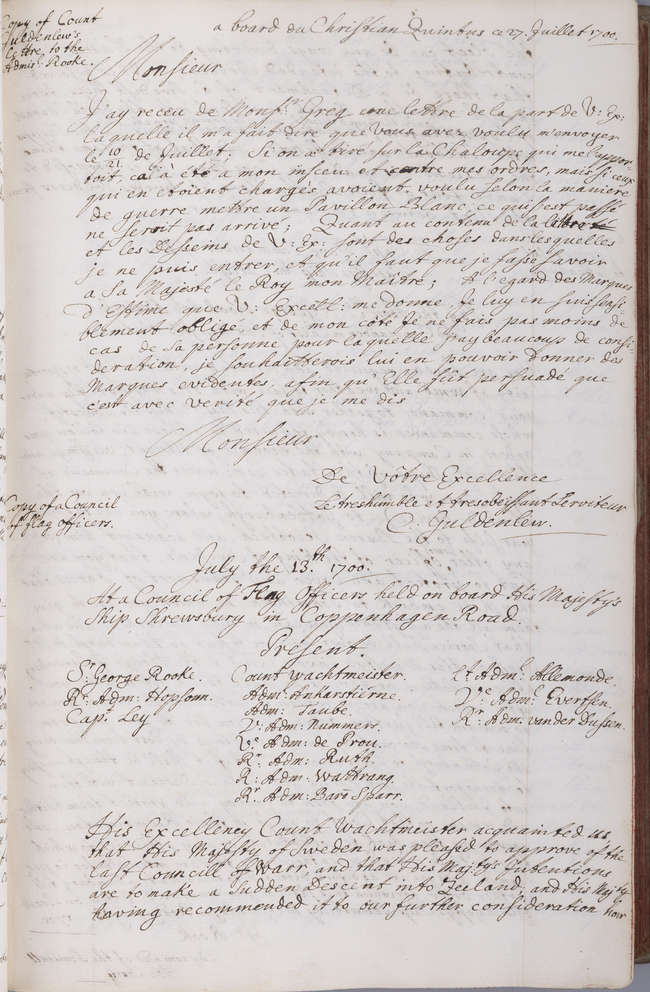 Copy of Count
Guldenlew's
Lettre, to the
Admir.l Rooke.
a board du Christian Quintus ce 27. Juillet 1700.
Monsieur
J'ay receu de Mons.r Greg une lettre de la part de V: Ex:
laquelle il m'a fait dire que Vous avez voulu m'envoyer
le 10/21 de Juillet; Si on a tiré sur la Chaloupe qui me l'appor
toit, ca'a été a mon insceu et contre mes ordres, mais si ceux
qui en etoient chargés avoient voulu selon la maniere
de guerre mettre un Pavillon Blanc, ce qui s'est passé
ne seroit pas arrivé; Quant au contenu de la lettre
et les Desseins de V: Ex: sont des choses dans lesquelles
je ne puis entrer, et qu'il faut que je fasse savoir
a Sa Majesté le Roy mon Maitre; A l'egard des Marques
D'Estime que V: Excell: me donne, Je luy en suis sensi
blement obligé, et de mon côté Je ne fais pas moins de
cas de sa personne pour laquelle j'ay beaucoup de consi
deration, je souhaitterois lui en pouvoir donner des
Marques evidentes, afin qu'Elle fût persuadé que
c'est avec verité que je me dis
Monsieur
De Vôtre Excellence
Le treshumble et tresobeissant Serviteur
C. Guldenlew.
Copy of a Council
of flag officers.
July the 13.th 1700.
At a Council of Flag Officers held on board His Majesty's
Ship Shrewsbury in Coppenhagen Road.
Present.
S.r George Rooke.
R.r Adm: Hopsonn.
Cap.t Ley
Count Wachtmeister.
Adm.l Ankarstierne.
Adm: Taube.
V: Adm: Nummers.
V.e Adm: de Prou.
R.r Adm: Ruth.
R: Adm: Wattrang.
R.r Adm: Baro Sparr.
Lt Adm.l Allemonde.
V.ce Adm.l Evertsen.
R.r Adm. van der Dussen.
His Excellency Count Wachtmeister acquainted us
that His Majesty of Sweden was pleased to approve of the
last Councill of Warr, and that His Maj.ty's Intentions
are to make a Sudden Descent into Zeeland, and His Maj.ty
having recommended it to our further consideration how